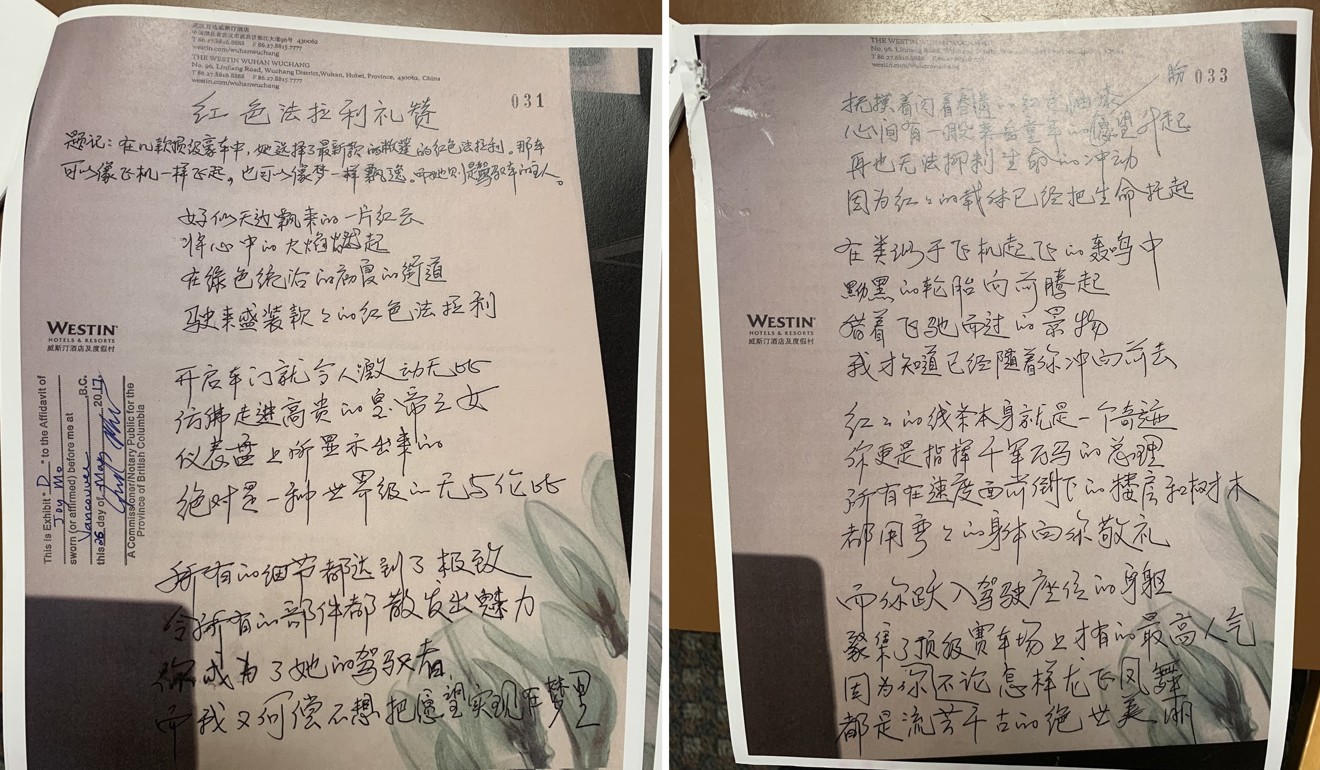 武汉万达威斯汀酒店
中国湖北省武汉市武昌区临江大道96号 430062
T 86.27.8816.8888 F 86.27.8815.7777
westin.com/wuhanwuchang
THE WESTIN WUHAN WUCHANG
No. 96, Linjiang Road, Wuchang District, Wuhan, Hubei, Province, 430062, China
T 86.27.8816.8888 F 86.27.8815.7777
westin.com/wuhanwuchang
031
红色法拉利礼赞
题记：在几款顶级豪车中，她选择了最新款的敞篷的红色法拉利。那车
可以像飞机一样飞起，也可以像梦一样飘逸。而她则是驾驭车的主人。
好似天边飘来的一片红云
将心中的火焰燃起
在绿色绝冶的初夏的街道
驶来盛装款款的红色法拉利
开启车门就令人激动无比
仿佛走进高贵的皇帝之女
仪表盘上所显示出来的
绝对是一种世界级的无与伦比
所有的细节都达到了极致
令所有的部件都散发出魅力
你成为了她的驾驭者
而我又何偿不想把愿望实现在梦里
WESTIN
HOTELS & RESORTS
威斯汀酒店及度假村
This is Exhibit "D" to the Affidavit of
Joy Mo
sworn (or affirmed) before me at
Vancouver, B.C.
this 26 day of May 2017
A Commissioner/Notary Public for the
Province of British Columbia
THE WESTIN WUHAN WUCHANG
No. 96, Linjiang Road, Wuchang District, Wuhan, Hubei, Province
盼 033
抚摸着闪着
心间有一股来自童年的愿望升起
再也无法抑制生命的冲动
因为红红的载体已经把生命托起
在类似于飞机起飞的轰鸣中
黝黑的轮胎向前腾起
借着飞驰而过的景物
我才知道已经随着你冲向前去
红红的线条本身就是一个奇迹
你更是指挥千军万马的总理
所有在速度面前倒下的楼房和树木
都用弯弯的身体向你敬礼
而你跃入驾驶座位的身躯
聚集了顶级赛车场上才有的最高人气
因为你不论怎样龙飞凤舞
都是流芳千古的绝世美丽
WESTIN
HOTELS & RESORTS
威斯汀酒店及度假村